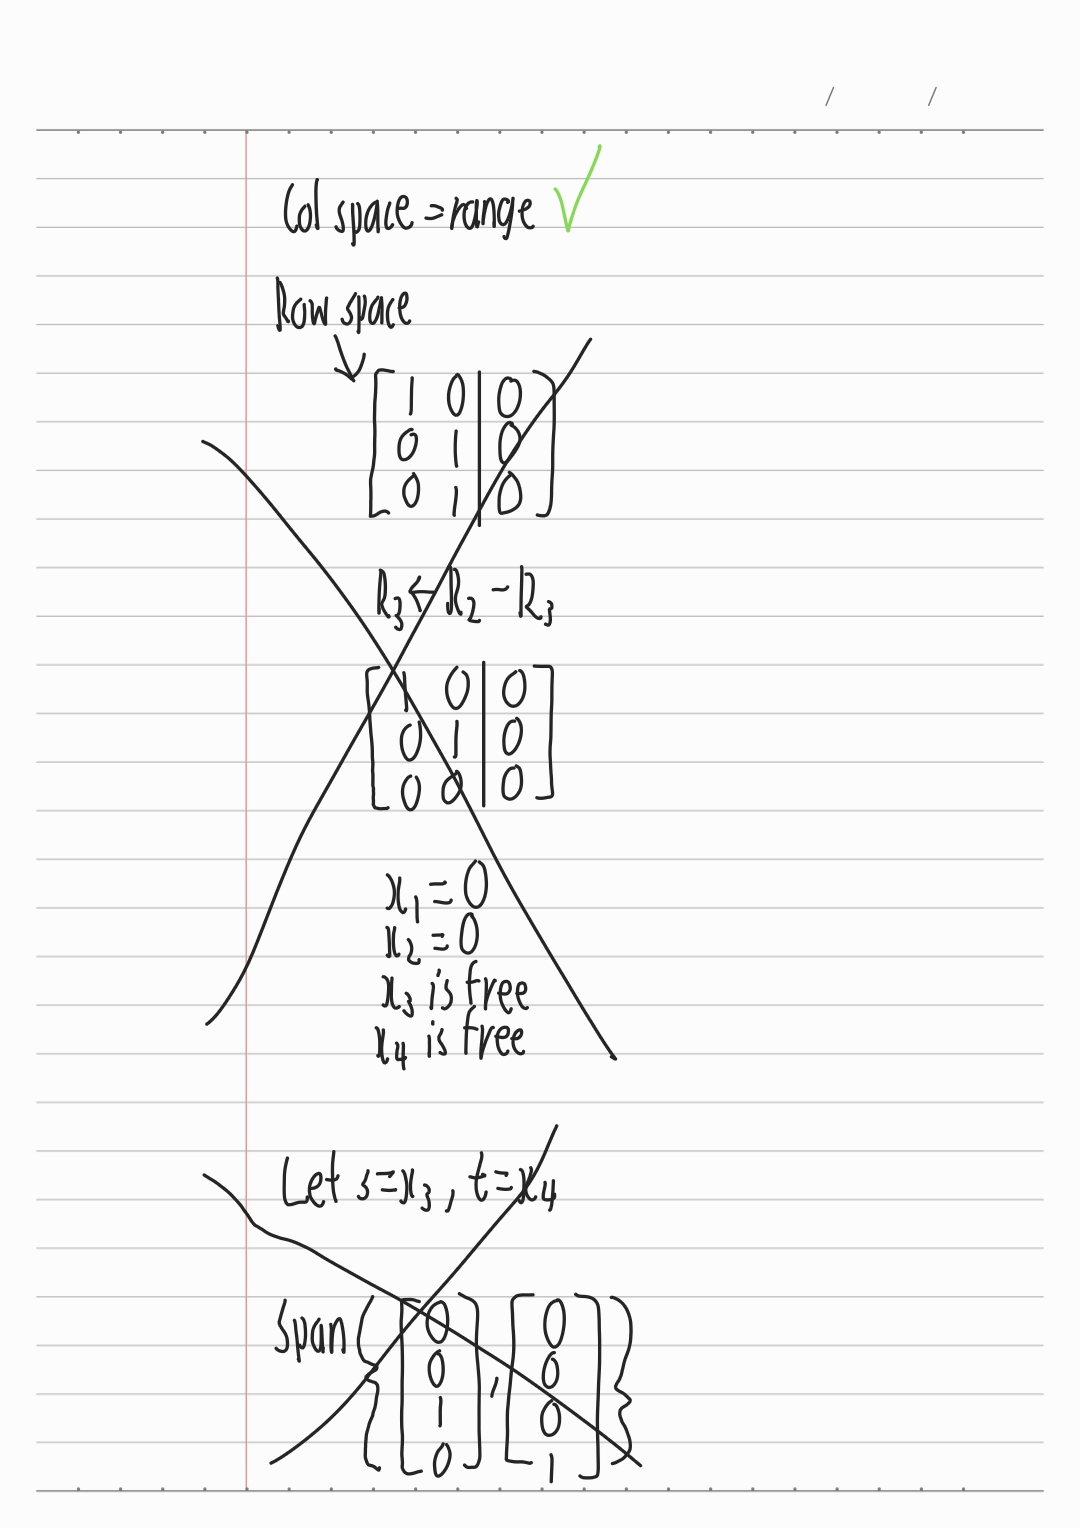 Col space = range ✓
Row space
[ 1 0 | 0 ]
[ 0 1 | 0 ]
[ 0 1 | 0 ]
R₃ ← R₂ − R₃
[ 1 0 | 0 ]
[ 0 1 | 0 ]
[ 0 0 | 0 ]
x₁ = 0
x₂ = 0
x₃ is free
x₄ is free
Let s = x₃, t = x₄
Span { [ 0 0 1 0 ] , [ 0 0 0 1 ] }